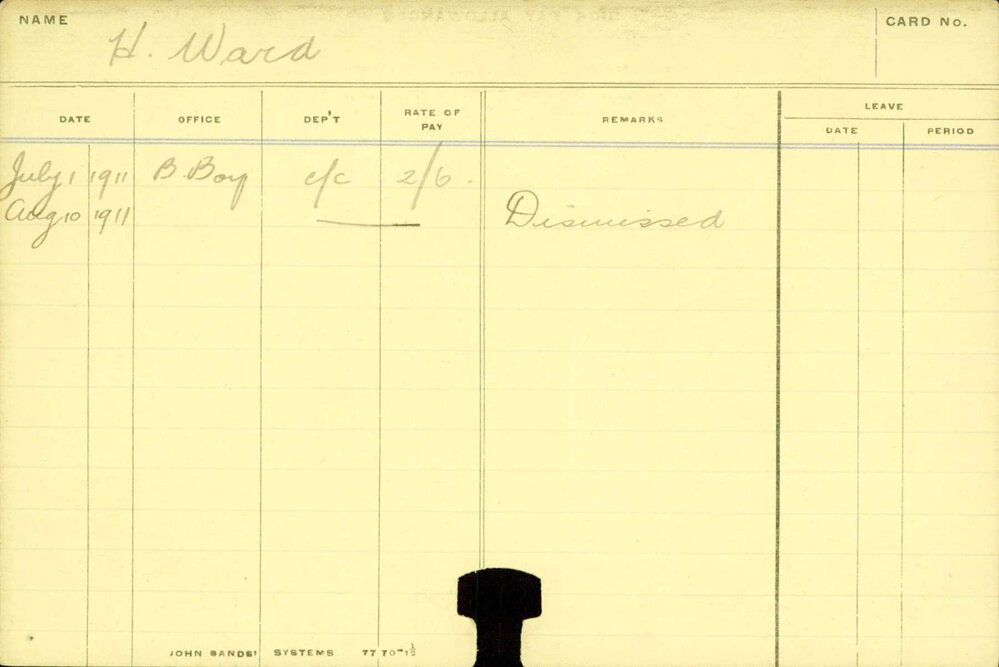 NAME H. Ward CARD No.
DATE OFFICE DEP'T RATE OF PAY REMARKS LEAVE
DATE PERIOD
July 1 1911 B. Boy c/c 2/6.
Aug 10 1911 Dismissed
JOHN SANDS' SYSTEMS